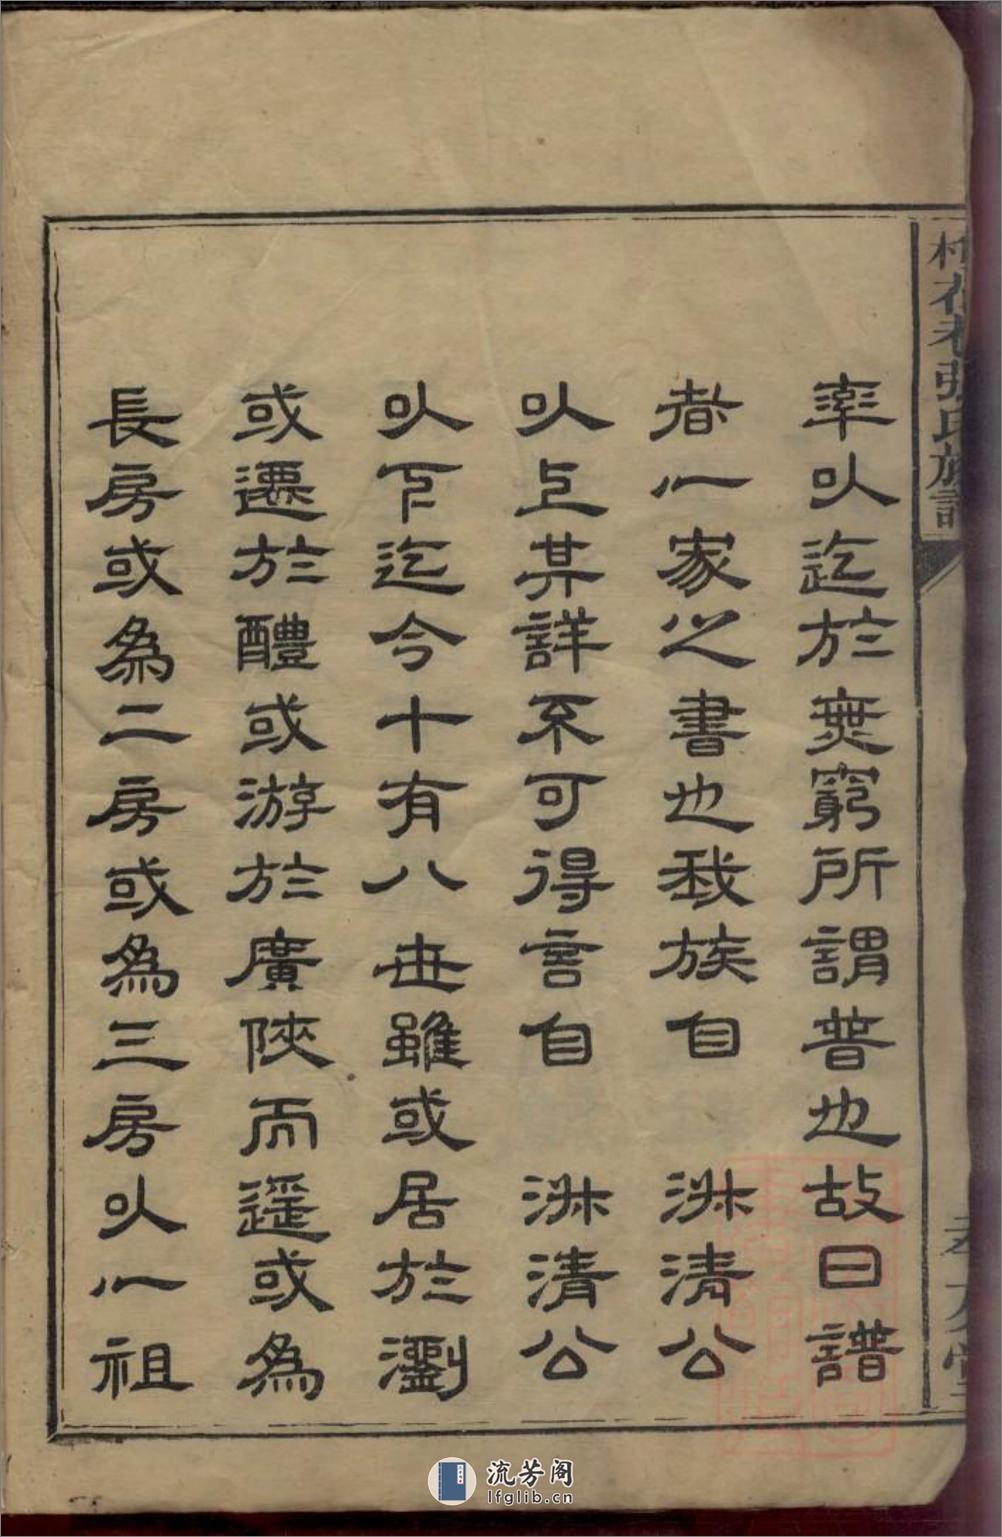 率以迄於無窮所謂普也故曰譜
者一家之書也我族自 洲清公
以上其詳不可得言自 洲清公
以下迄今十有八世雖或居於瀏
或遷於醴或游於廣陝而遥或為
長房或為二房或為三房以一祖
張氏族譜
流芳阁
lfglib.cn